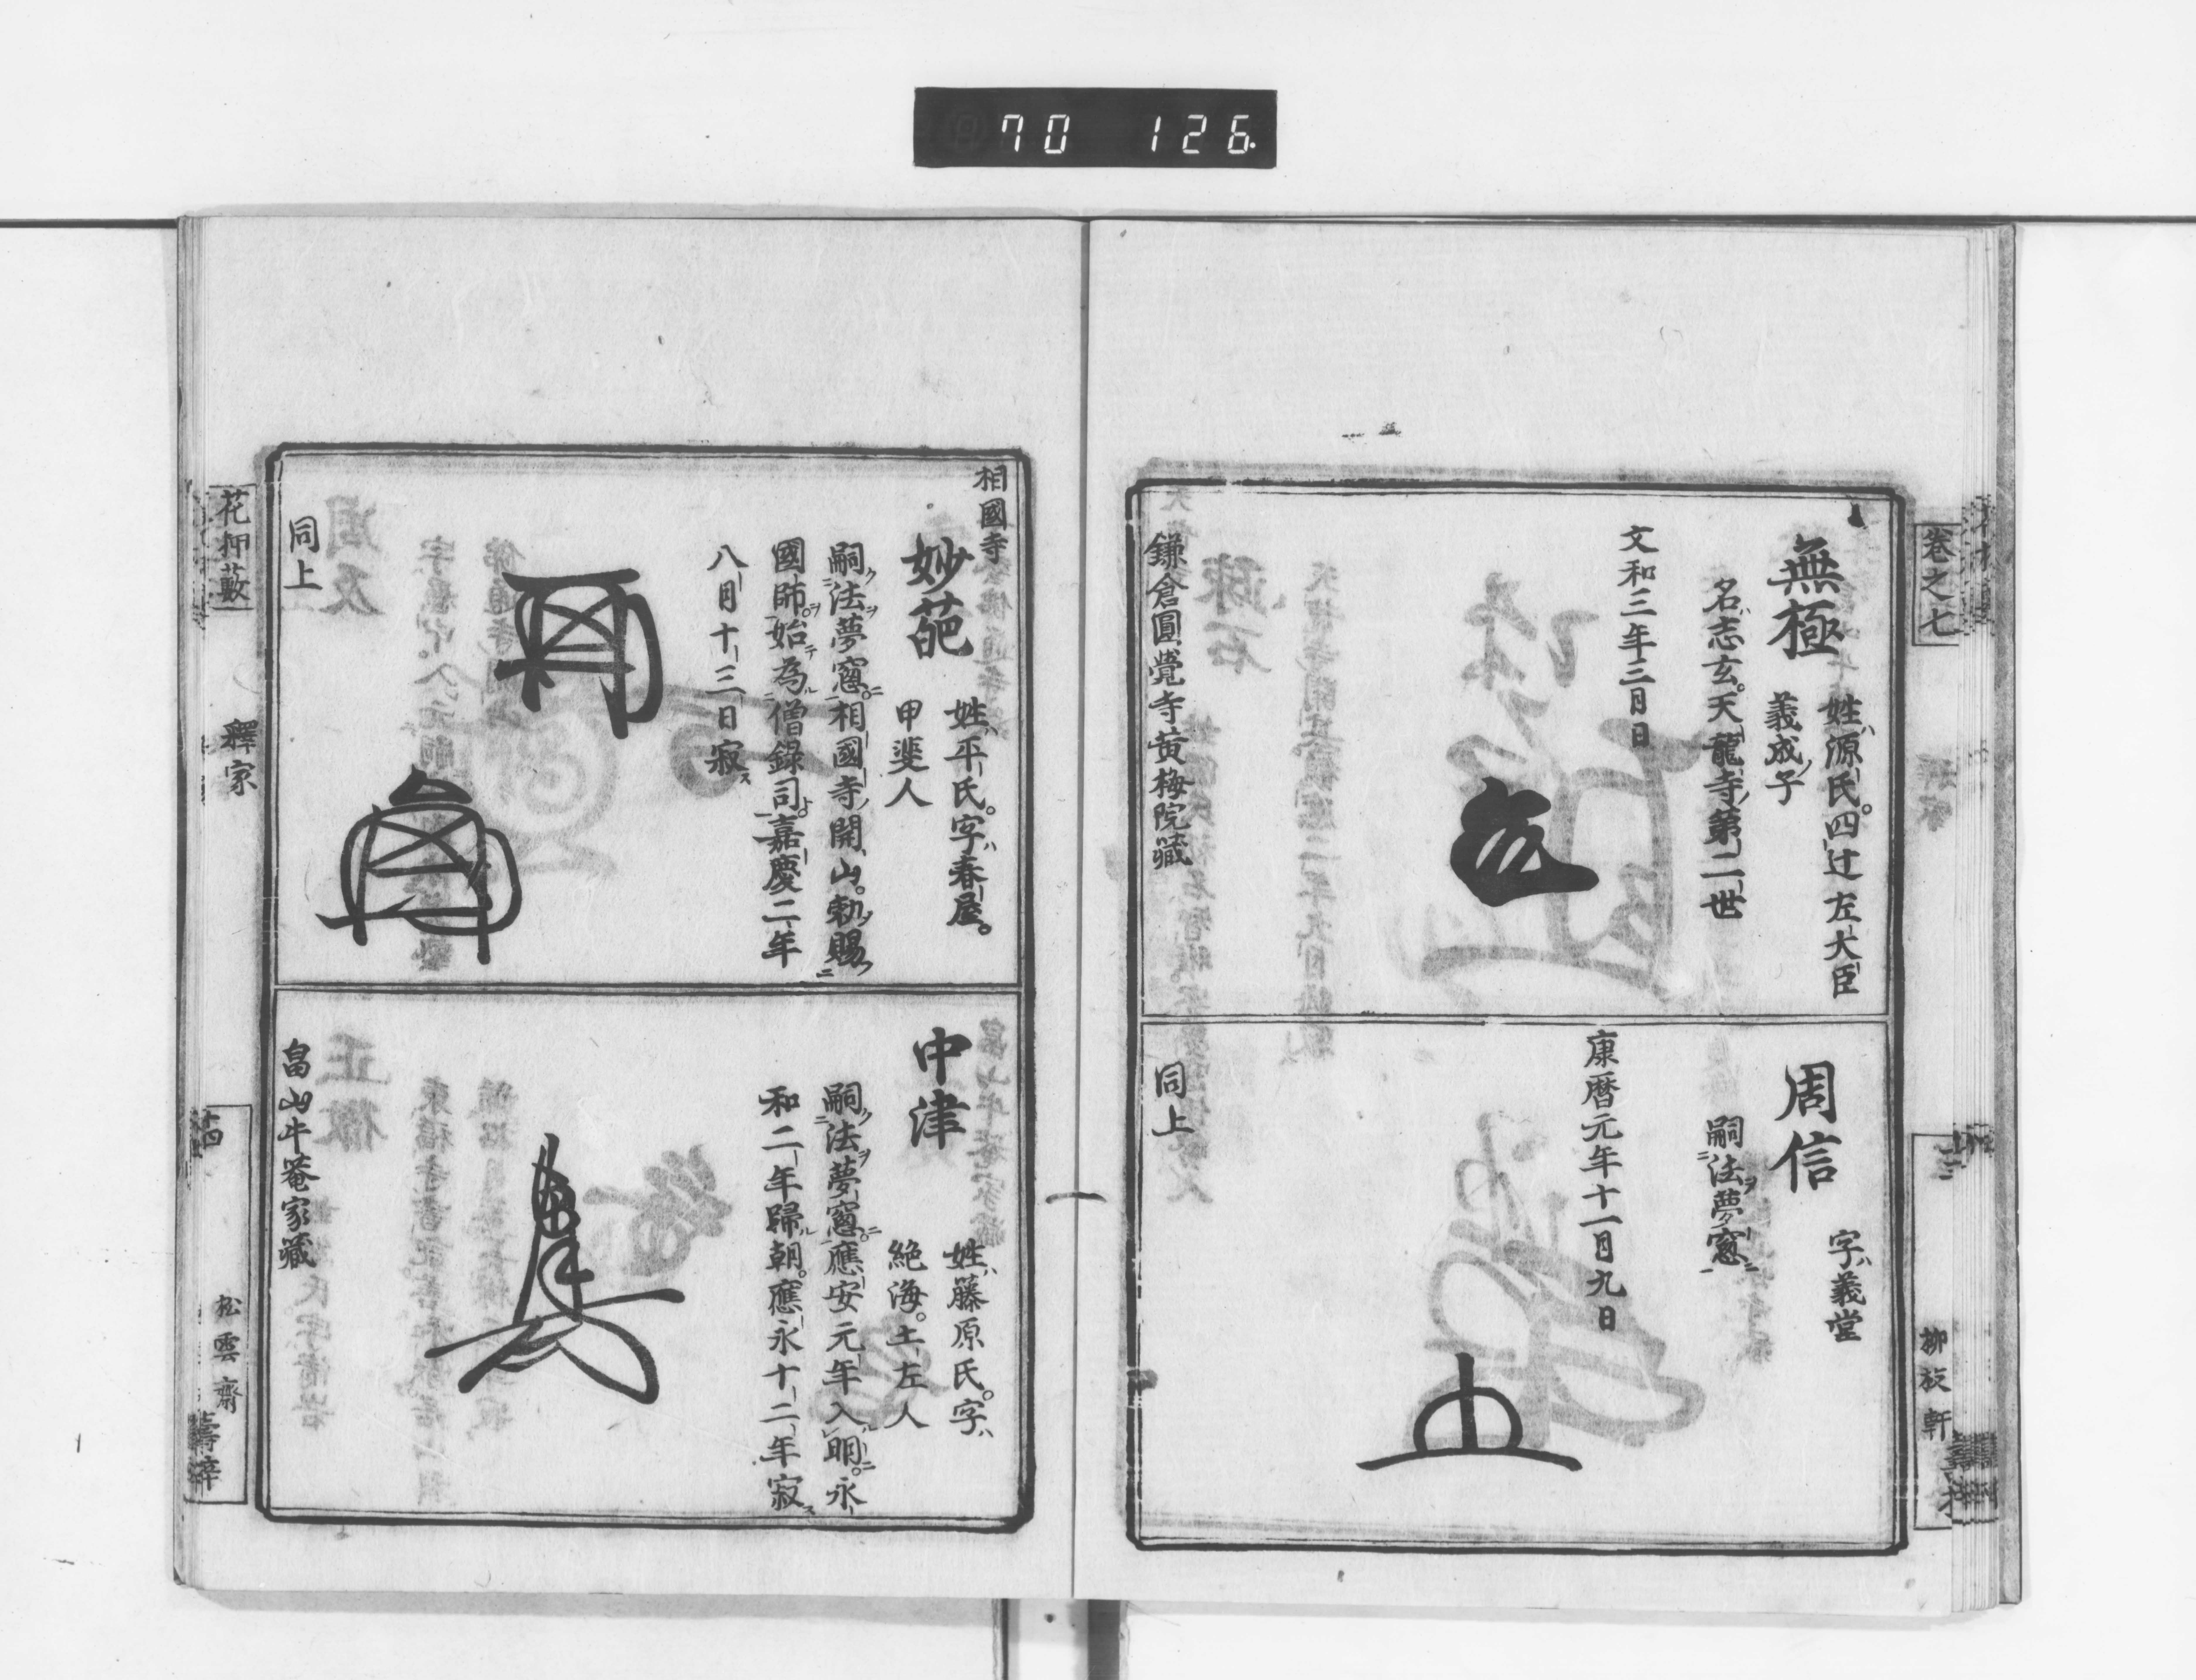 70 126
卷之七
柳枝軒
無極
姓ハ源氏。四辻左大臣
義成ノ子
名ハ志玄。天龍寺ノ第二世
文和三年三月日
鎌倉圓覺寺黃梅院藏
周信
字ハ義堂
嗣法ヲ夢窻ニ
康暦元年十一月九日
同上
相國寺
妙葩
姓ハ平氏。字ハ春屋。
甲斐人
嗣ク法ヲ夢窻ニ。相國寺ノ開山。勅ノ賜フ
國師。始テ為ル僧錄司ト。嘉慶二年
八月十三日寂ス
同上
中津
姓ハ藤原氏。字ハ
絶海。土左人
嗣ク法ヲ夢窻ニ。應安元年入ル明ニ。永
和二年歸ル朝。應永十二年寂ス
畠山牛菴家藏
花押藪
釋家
十四
松雲齋